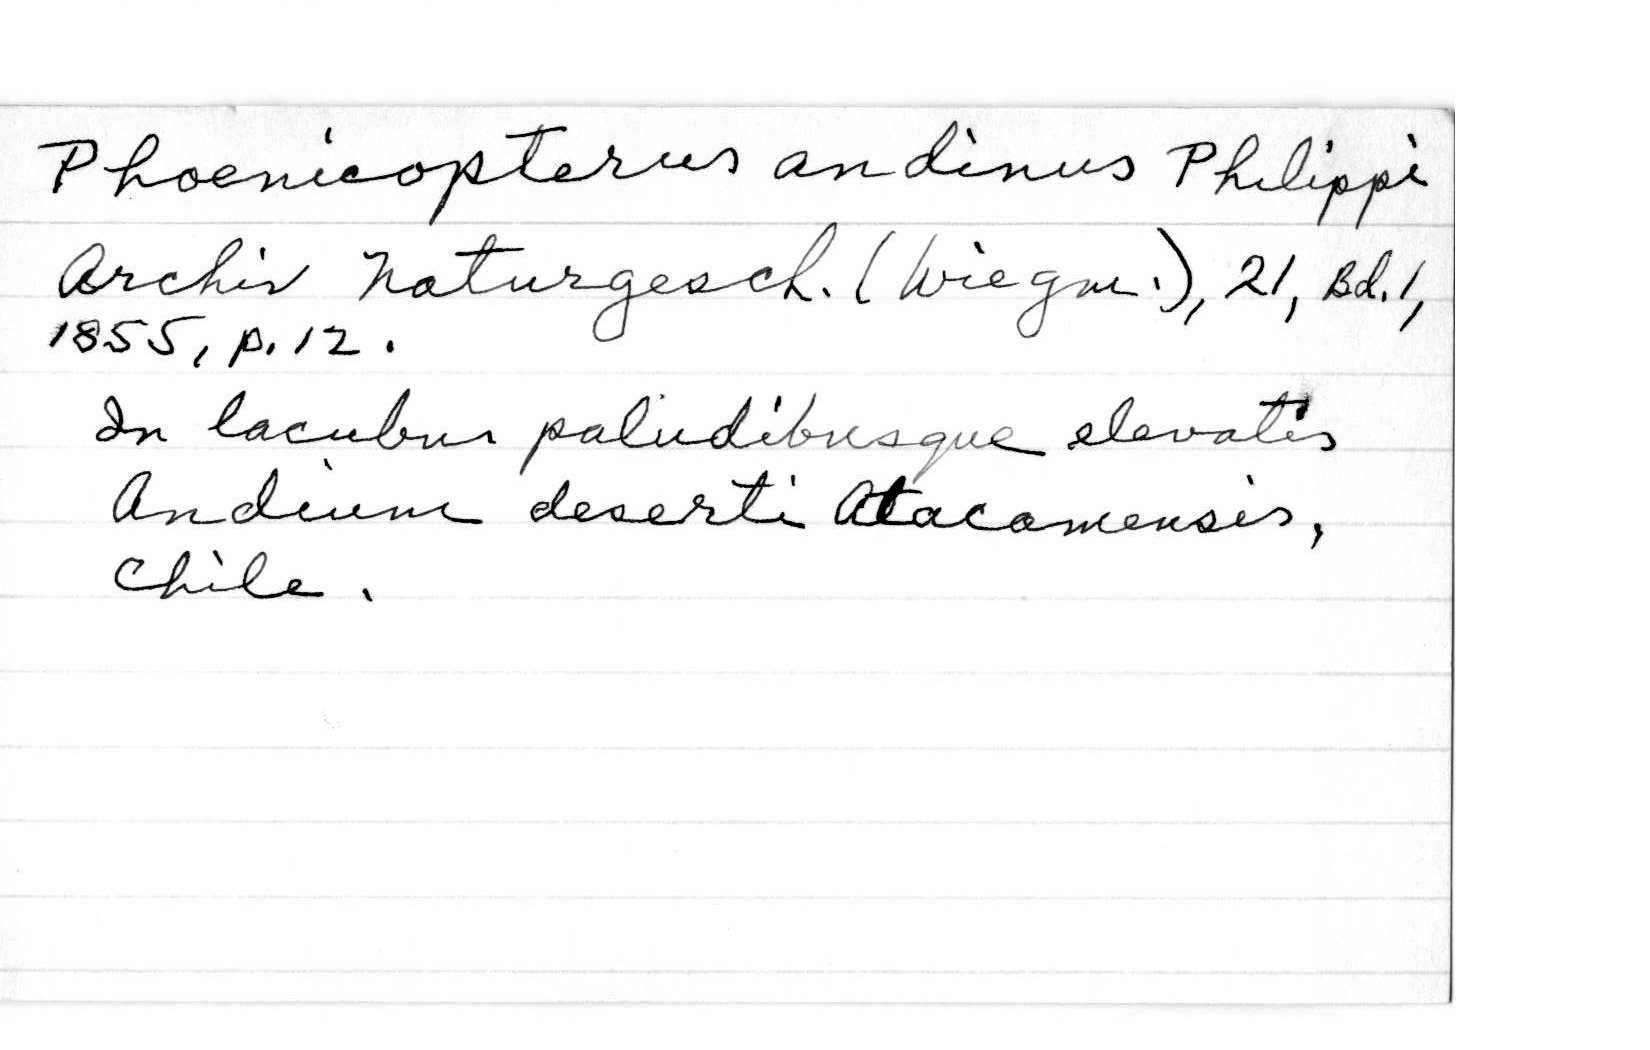 Phoenicopterus andinus Philippi
Archiv Naturgesch. (Wiegm.), 21, Bd. 1,
1855, p. 12.
In lacubus paludibusque elevatis
Andium deserti Atacamensis,
Chile.